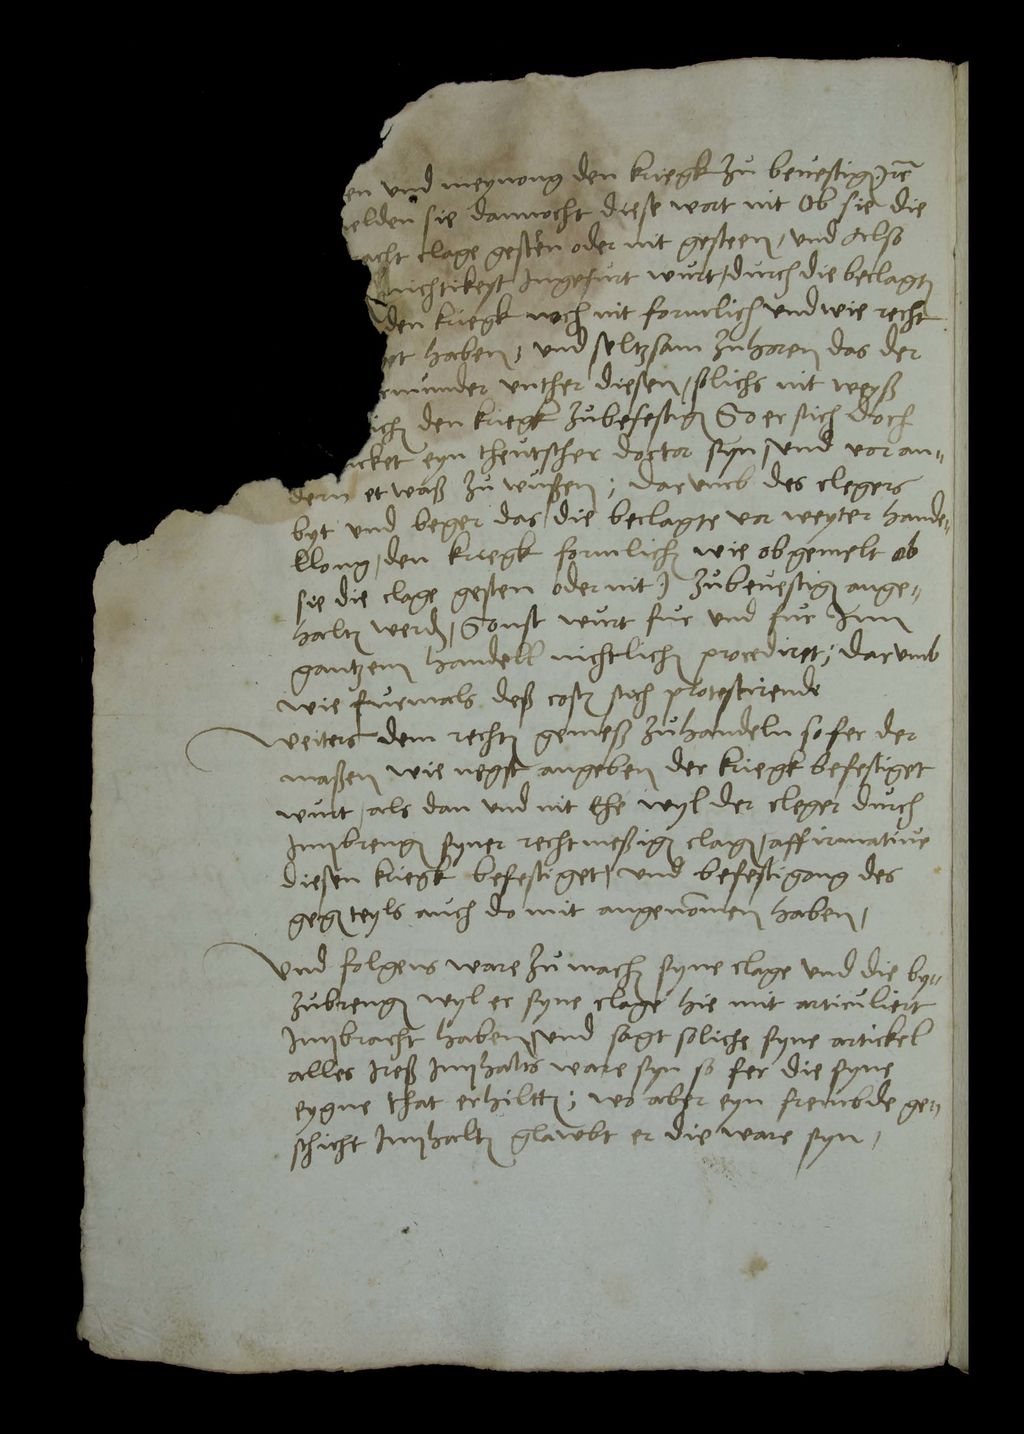 en vnd meynong den kriegk zu beuestigen rc
elden sie dannocht diese wort nit Ob sie die
acht clage gesten oder nit gesteen, vnd Also
nichtikeyt Ingefurt wurt, durch die beclagten
den kriegk noch nit formlich vnd wie recht
get haben; vnd seltzsam zuhoren das der
rmunder vnther diesen, solichs nit weyß
ichen den kriegk zubefestigen So er sich doch
cket eyn theutscher doctor syn, vnd vor an-
dern etwaß zu wußen; darumb des clegers
byt vnd beger das, die beclagte vor weyter hande-
llong, den kriegk formlichen wie obgemelt ob
sie die clage gesten oder nit) zubeuestigen ange-
halten werden, Sonst wurt fur vnd fur Inn
gantzem handell nichtlichen procediret; darumb
wie fuermals deß costen sich protestirende
Weiters dem rechten gemeß zuhandeln so fer der
maßen wie negst angeben der kriegk befestiget
wurt, als dan vnd nit Ehe wyl der cleger durch
Innbrengen syner rechtmeßigen clagen, affirmatiue
diesen kriegk befestiget, vnd befestigong des
gegenteyls auch do mit angenommen haben,
Vnd folgens ware zu machen syne clage vnd die by-
zubrengen wyl er syne clage hie mit articuliert
Innbracht haben, vnd sagt soliche syne artickel
alles Ireß Innhalts ware syn so fer die syne
eygne that erhilten; wo aber eyn frembde ge-
schicht Innhalten glawbt er die ware syn,